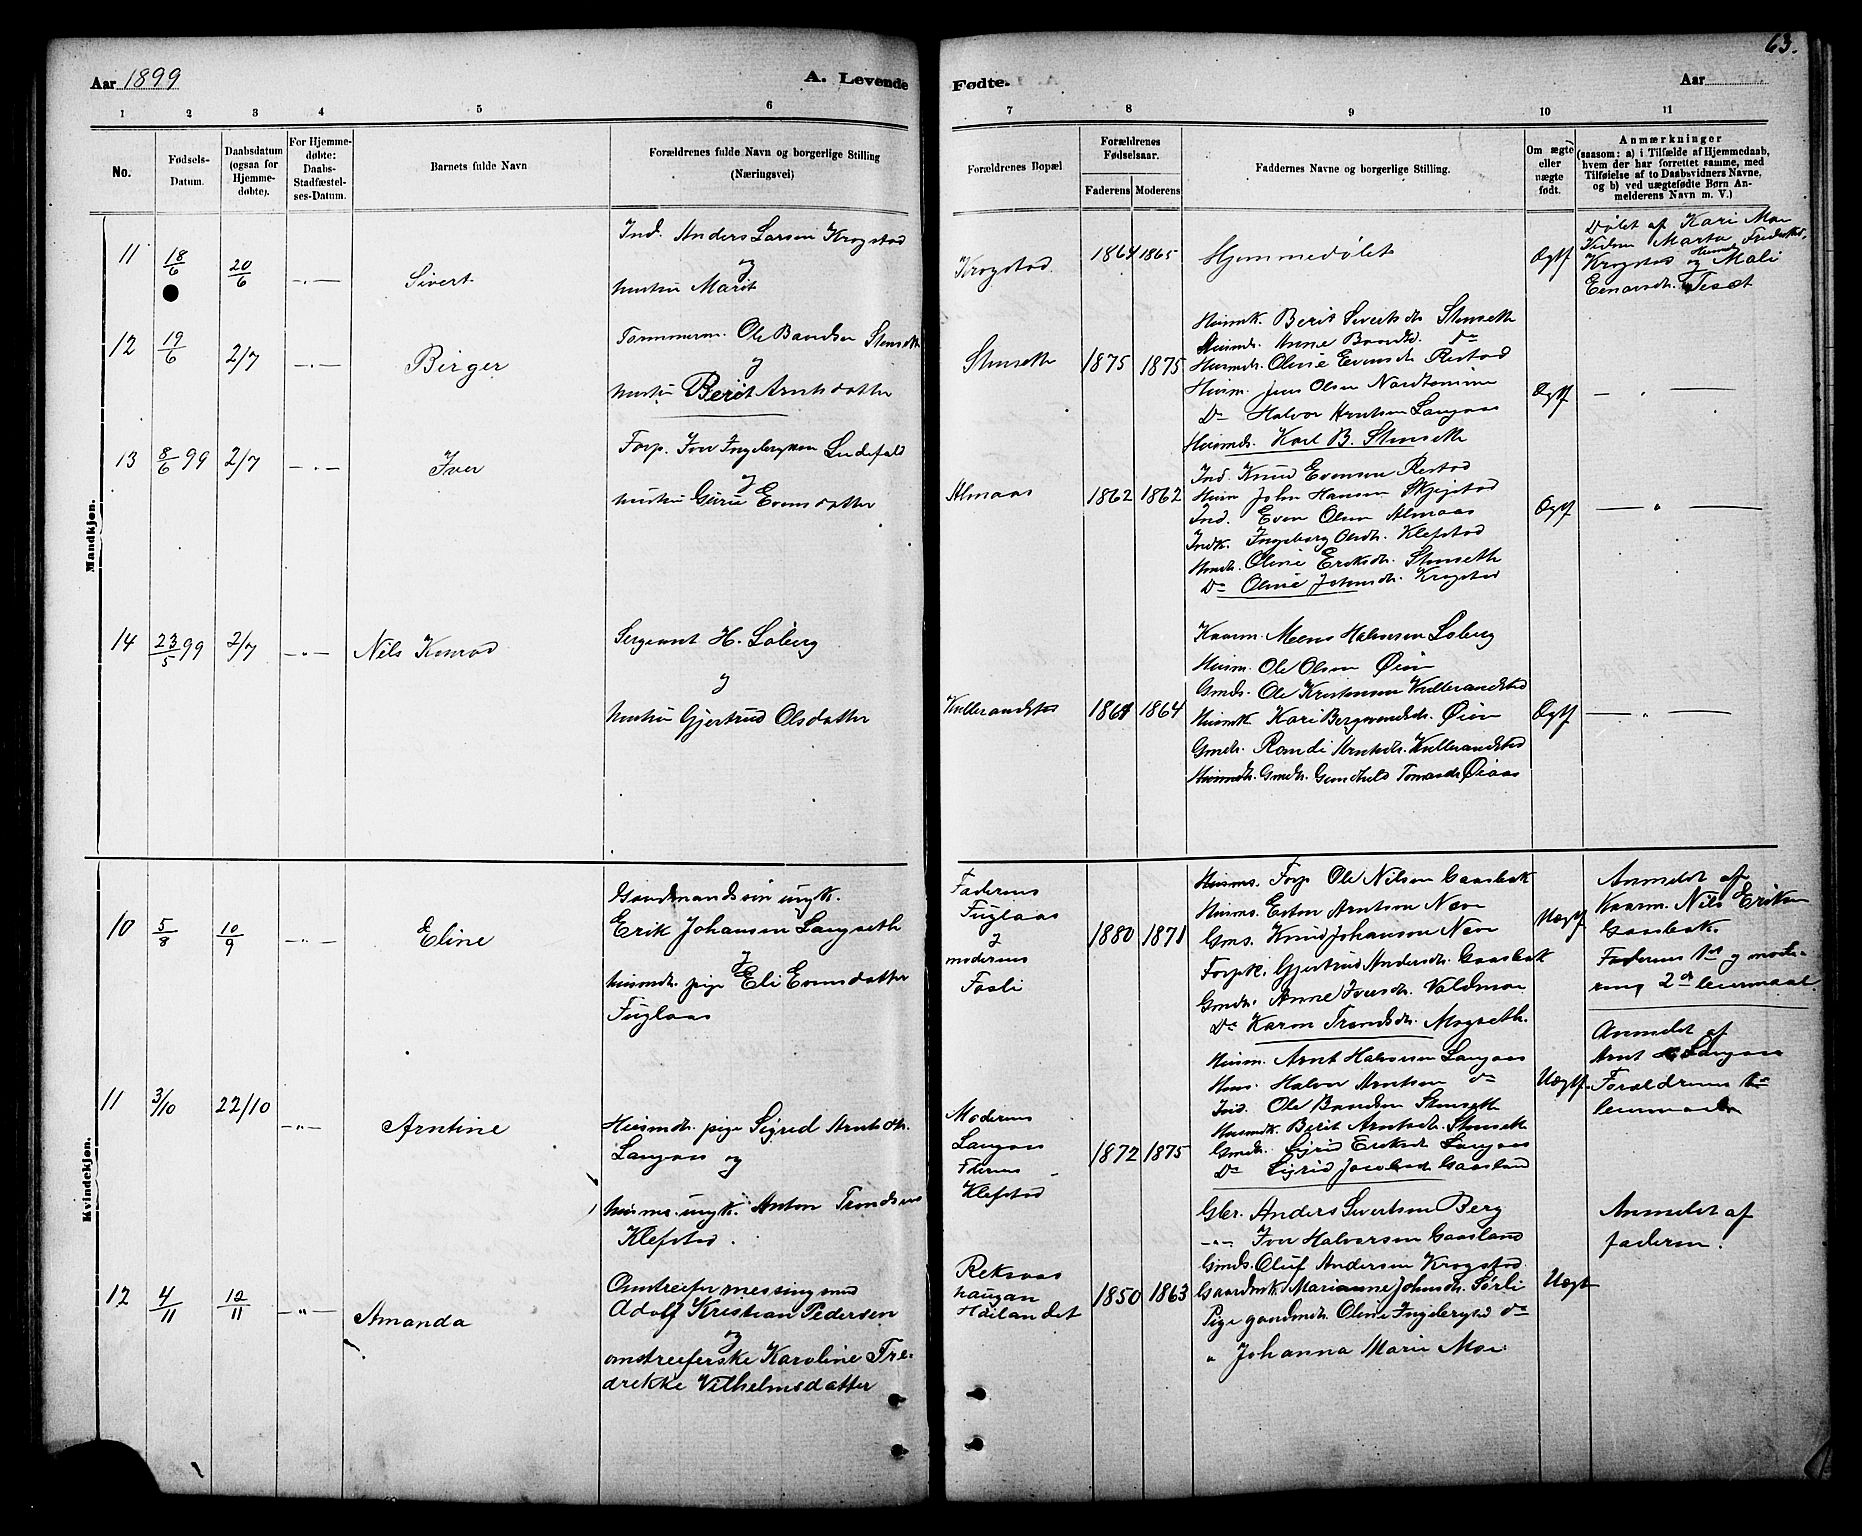 63.
Aar 1899
A. Levende
Fødte.
Aar
1 2 3 4 5 6 7 8 9 10 11
No.
Fødsels-
Datum.
Daabsdatum
(ogsaa for
Hjemme-
døbte).
For Hjemme-
døbte:
Daabs-
Stadfæstel-
ses-Datum.
Barnets fulde Navn
Forældrenes fulde Navn og borgerlige Stilling
(Næringsvei)
Forældrenes Bopæl
Forældrenes
Fødselsaar.
Faderens Moderens
Faddernes Navne og borgerlige Stilling.
Om ægte
eller
uægte
født.
Anmærkninger
(saasom: a) i Tilfælde af Hjemmedaab,
hvem der har forrettet samme, med
Tilføielse af to Daabsvidners Navne,
og b) ved uægtefødte Børn An-
melderens Navn m. V.)
Mandkjøn.
11 18/6 20/6 -"- Sivert
Ind. Anders Larsen Krogstad
og
hustru Marit
Krogstad 1864 1865
Hjemmedøbt
Ægtf
Døbt af Kari Moe
Marta Fredriks.
Krogstad og Mali
Einarsdt. Teset
12 19/6 2/7 -"- Birger
Tømmerm. Ole Baardsen Stenseth
og
hustru Berit Arntsdatter
Stenseth 1875 1875
Husmk. Berit Sivertsdt. Stenseth
Husmd. Anne Baardsd. Do
Husmdt. Oline Evensdt. Restad
Husm. Jens Olsen Nordtømme
Do Halvor Arntsen Langaas
Husmds. Karl B. Stenseth
Ægtf
— " —
13 8/6 99 2/7 -"- Iver
Forp. Iver Ingebrigtsen Lindefald
og
hustru Guru Evensdatter
Almaas 1862 1862
Ind. Knud Evensen Restad
Husm John Hansen Skjejstad
Ind. Even Olsen Almaas
Indk. Ingeborg Olsdt. Klefstad
Husmdt. Oline Eriksdt. Stenseth
Do Oline Johnsdt. Krogstad
Ægtf
— " —
14 23/5 99 2/7 -"- Nils Konrad
Sergeant H. Løberg
og
hustru Gjertrud Olsdatter
Kulbrandstad 1864 1864
Kaarm. Mons Halvorsen Løberg
Husm. Ole Olsen Øien
Gmds. Ole Kristensen Kulbrandstad
Husmk. Kari Bergsvendsdt. Øien
Gmdt. Randi Arntsdt. Kulbrandstad
Gmdt. Gunhild Tomasdt. Øiaas
Ægtf
— " —
Kvindekjøn.
10 5/8 10/9 -"- Eline
Gaardmandsøn ungk.
Erik Johansen Langseth
og
husmdt. pige Eli Evensdatter
Fuglaas
Faderens
Fuglaas
og
moderens
Fosli
1880 1871
Forp Ole Nilsen Gaasbak
Husms. Esten Arntsen Næve
Gms. Knud Johansen Næve
Forpk. Gjertrud Andersdt. Gaasbak
Gmdt. Anne Iversdt. Valdmoe
Do Karen Trondsdt. Mogseth.
Uægtf
Anmeldt af
Kaarm. Nils Eriksen
Gaasbak.
Faderens 1ste og mode-
rens 2det leiermaal.
11 3/10 22/10 -"- Arntine
Husmdt. pige Sigrid Arntsdt.
Langaas og
husms. ungk. Anton Trondsen
Klefstad.
Moderens
Langaas
Fderens
Klefstad
1872 1875
Husm. Arnt Halvorsen Langaas
Hms. Halvor Arntsen do
Ind. Ole Baardsen Stenseth
Husmk. Berit Arntsdt. Stenseth
Gmdt. Sigrid Eriksdt. Langaas
Do Sigrid Jacobsdt. Gaasland
Uægtf.
Anmeldt af
Arnt H. Langaas
Forældrenes 1ste
leiermaal
12 4/11 12/11 -"- Amanda
Omstreifer messingsmed
Adolf Kristian Pedersen
og
omstreiferske Karoline Fre-
drekke Vilhelmsdatter
Reksaas
haugan
Hølandet
1850 1863
Gbr. Anders Sivertsen Berg
-"- Iver Halvorsen Gaasland
Gmds. Oluf Andersen Krogstad
Gaardmk. Marianne Johnsdt. Sørli
Pige gaardmdt. Oline Ingebrigtsd do
" Johanna Marie Moe
Uægt
Anmeldt af
faderen.